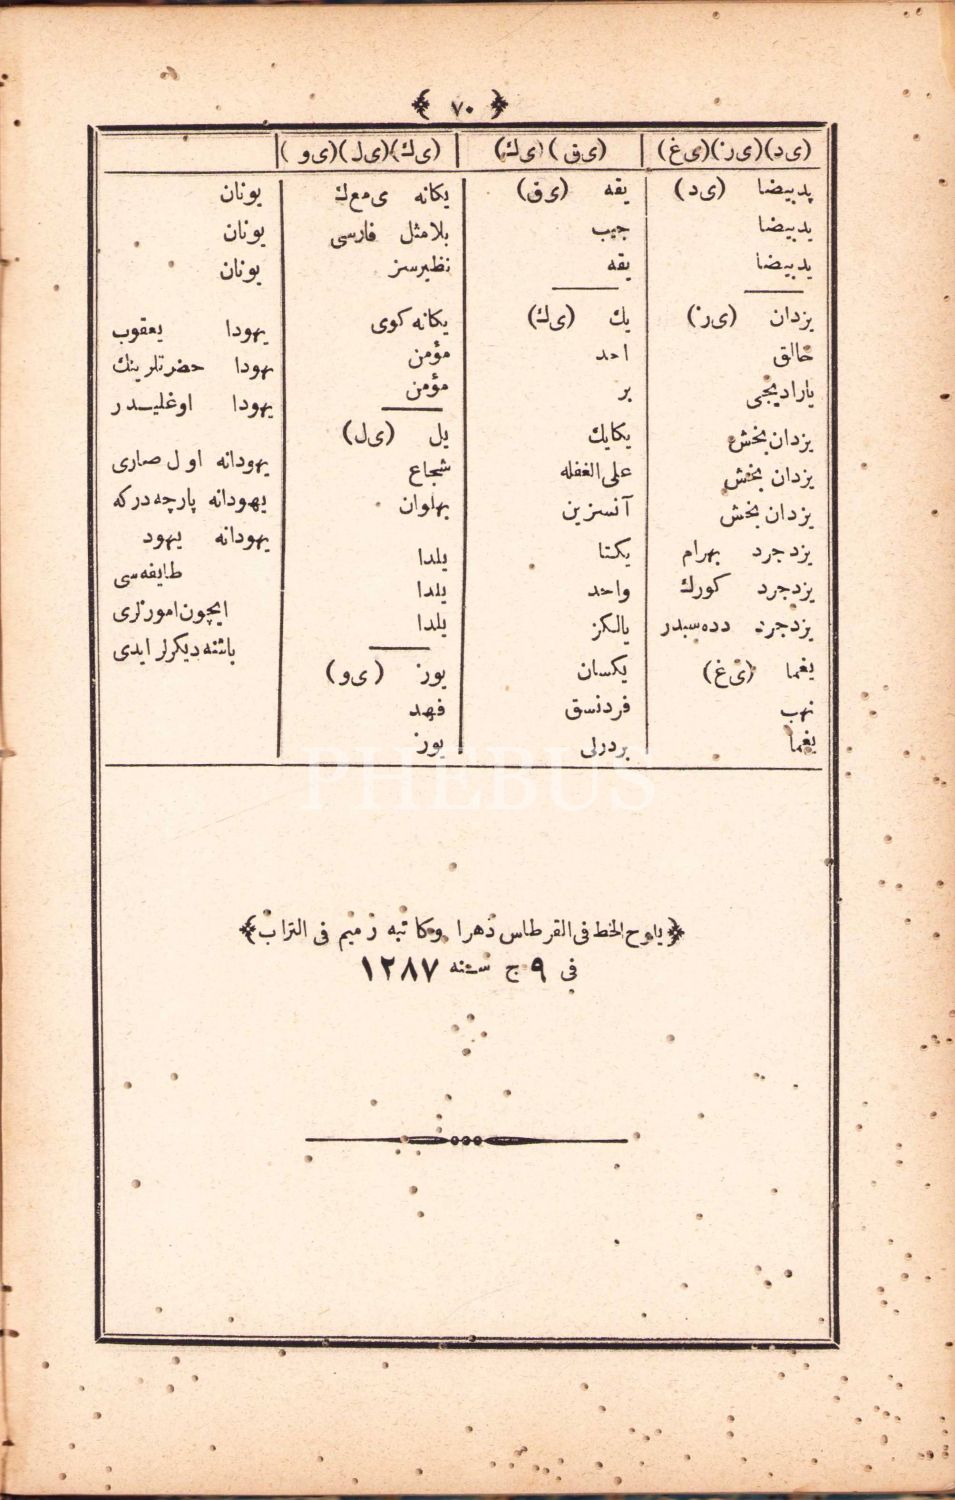 ﴿ ٧٠ ﴾
(ى د)(ى ز)(ى غ)
يدبيضا (ى د)
يدبيضا
يدبيضا
يزدان (ى ز)
خالق
يارادیجی
يزدان بخش
يزدان بخش
يزدان بخش
يزدجرد بهرام
يزدجرد كورك
يزدجرد دده سيدر
يغما (ى غ)
نهب
يغما
(ى ق) (ى ك)
يقه (ى ق)
جيب
يقه
يك (ى ك)
احد
بر
يكايك
على الغفله
آنسزين
يكتا
واحد
يالكز
يكسان
فردنسق
بردرلى
(ى ك)(ى ل)(ى و)
يكانه ى مع ك
بلامثل فارسى
نظيرسز
يكانه كوى
مؤمن
مؤمن
يل (ى ل)
شجاع
بهلوان
يلدا
يلدا
يلدا
يوز (ى و)
فهد
يوز
يونان
يونان
يونان
يهودا يعقوب
يهودا حضرتلرينك
يهودا اوغليدر
يهودانه اول صارى
يهودانه پارچه دركه
يهودانه يهود
طايفه سى
ايچون اموزلرى
باشنه ديكرلر ايدى
PHEBUS
﴿ ياوح الخط فى القرطاس دهرا وكاتبه رميم فى التراب ﴾
فى ٩ ج سنه ١٢٨٧